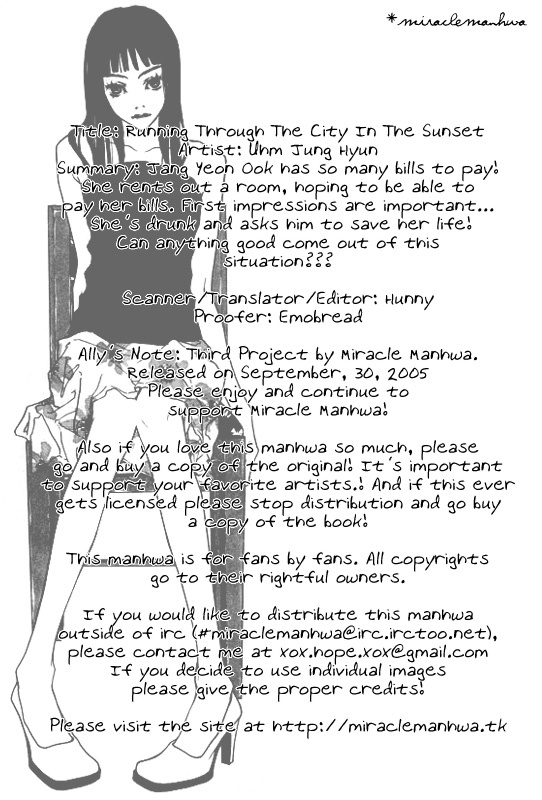 *miraclemanhwa
Title: Running Through The City In The Sunset
Artist: Uhm Jung Hyun
Summary: Jang Yeon Ook has so many bills to pay!
She rents out a room, hoping to be able to
pay her bills. First impressions are important...
She's drunk and asks him to save her life!
Can anything good come out of this
situation???
Scanner/Translator/Editor: Hunny
Proofer: Emobread
Ally's Note: Third Project by Miracle Manhwa.
Released on September, 30, 2005
Please enjoy and continue to
support Miracle Manhwa!
Also if you love this manhwa so much, please
go and buy a copy of the original! It's important
to support your favorite artists.! And if this ever
gets licensed please stop distribution and go buy
a copy of the book!
This manhwa is for fans by fans. All copyrights
go to their rightful owners.
If you would like to distribute this manhwa
outside of irc (#miraclemanhwa@irc.irctoo.net),
please contact me at xox.hope.xox@gmail.com
If you decide to use individual images
please give the proper credits!
Please visit the site at http://miraclemanhwa.tk